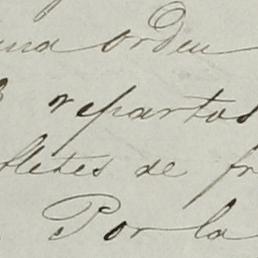 una orden
repartos
fletes de fr
Por la